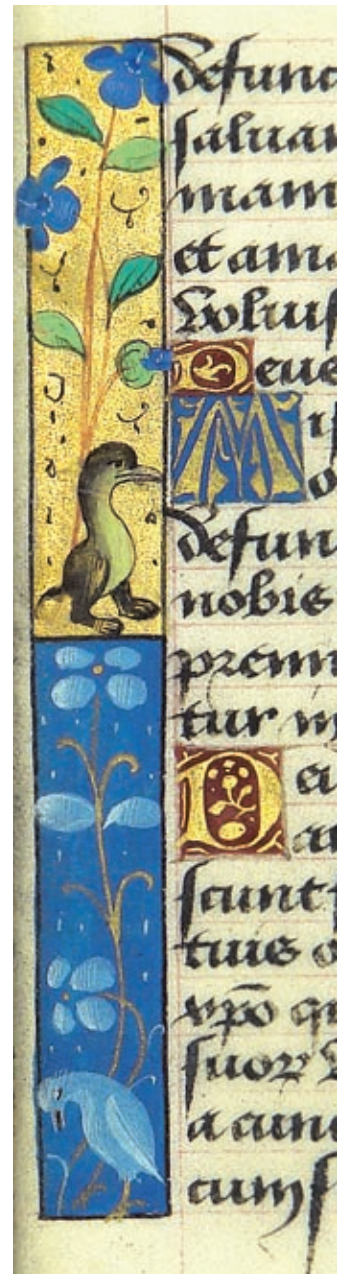 defunc
saluan
mam
et ama
Voluis
Deus
Mi
o
defun
nobis
premi
tur in
Dei
au
scunt
tuis o
xpō qu
suor
a cunc
cum s